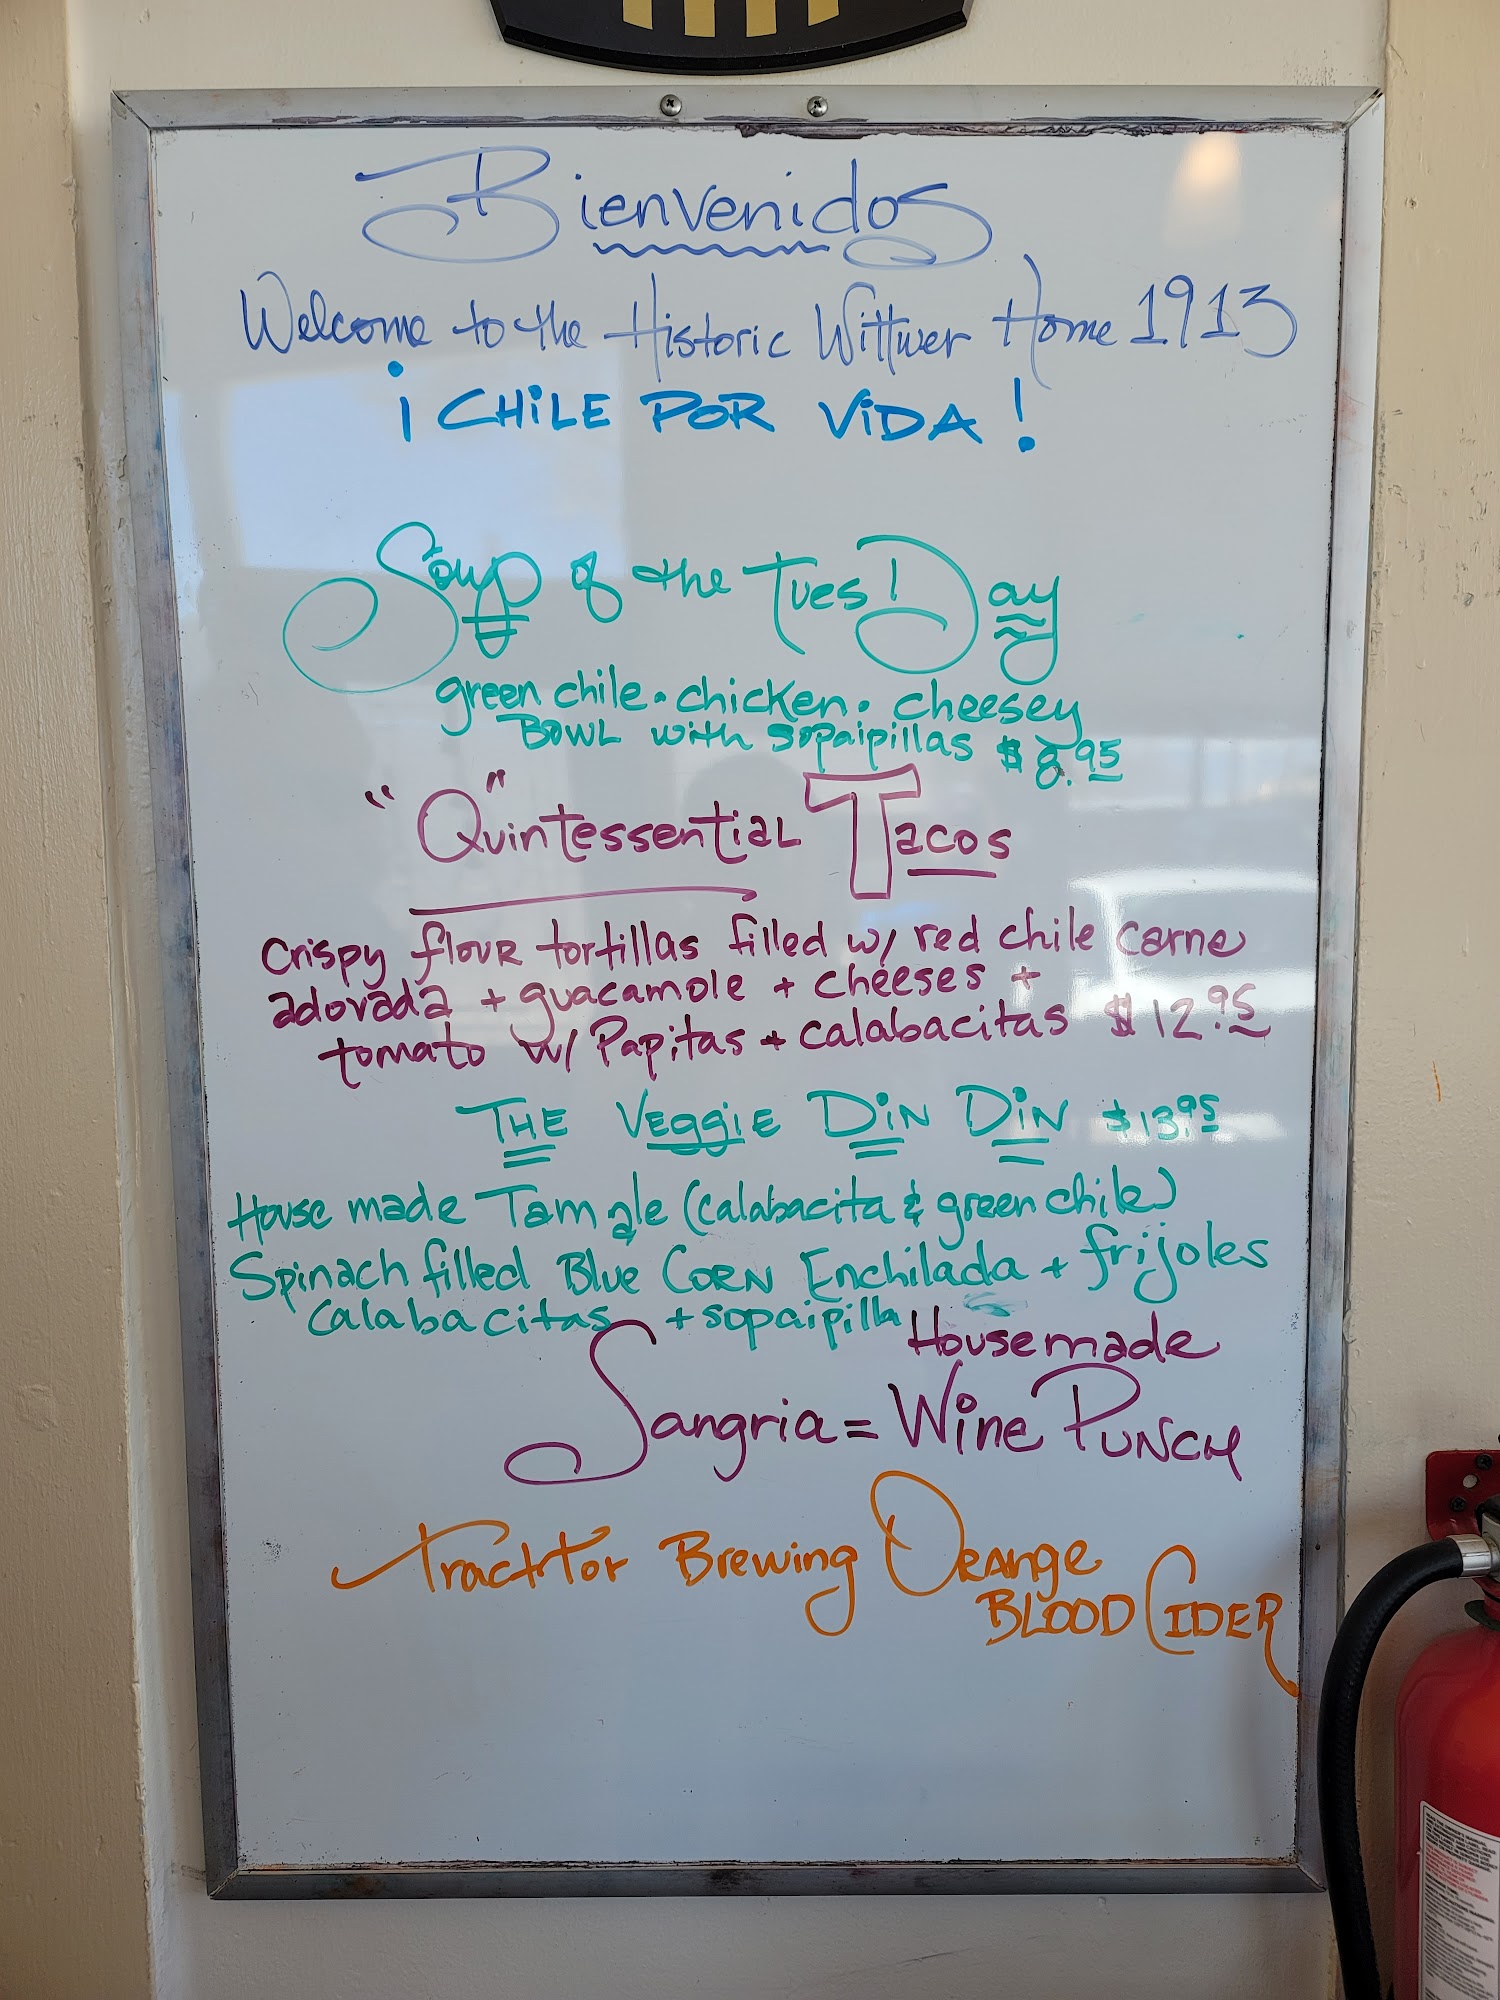 Bienvenidos
Welcome to the Historic Wittwer Home 1913
¡CHiLE POR ViDA!
Soup of the TuesDay
green chile • chicken • cheesey
BOWL with sopaipillas $8.95
"Q"uintessential Tacos
Crispy flour tortillas filled w/ red chile carne
adovada + guacamole + cheeses +
tomato w/ Papitas + calabacitas $12.95
THE VeggiE DiN DiN $13.95
House made Tamale (calabacita & green chile)
Spinach filled Blue CORN Enchilada + frijoles
calabacitas + sopaipilla
Housemade
Sangria = Wine PUNCH
Tractor Brewing ORANge
BLOOD CIDER